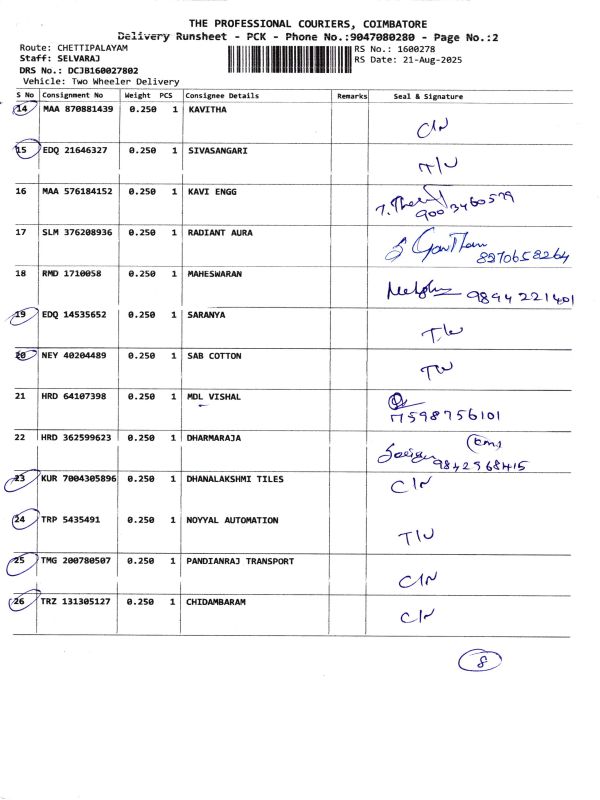 THE PROFESSIONAL COURIERS, COIMBATORE
Delivery Runsheet - PCK - Phone No.:9047080280 - Page No.:2
Route: CHETTIPALAYAM RS No.: 1600278
Staff: SELVARAJ RS Date: 21-Aug-2025
DRS No.: DCJB160027802
Vehicle: Two Wheeler Delivery
S No Consignment No Weight PCS Consignee Details Remarks Seal & Signature
14 MAA 870881439 0.250 1 KAVITHA C/N
15 EDQ 21646327 0.250 1 SIVASANGARI T/W
16 MAA 576184152 0.250 1 KAVI ENGG
9003460579
17 SLM 376208936 0.250 1 RADIANT AURA
8870658264
18 RMD 1710058 0.250 1 MAHESWARAN 9894221401
19 EDQ 14535652 0.250 1 SARANYA T/W
20 NEY 40204489 0.250 1 SAB COTTON T/W
21 HRD 64107398 0.250 1 MDL VISHAL
7598756101
22 HRD 362599623 0.250 1 DHARMARAJA
9842968415
23 KUR 7004305896 0.250 1 DHANALAKSHMI TILES C/N
24 TRP 5435491 0.250 1 NOYYAL AUTOMATION T/W
25 TMG 200780507 0.250 1 PANDIANRAJ TRANSPORT C/N
26 TRZ 131305127 0.250 1 CHIDAMBARAM C/N
8